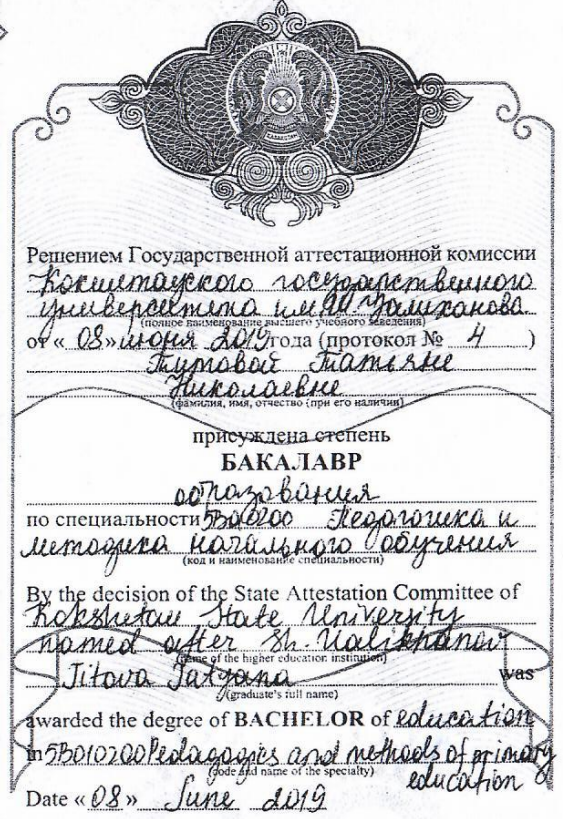 Решением Государственной аттестационной комиссии
Кокшетауского государственного
университета им. Ш. Уалиханова
(полное наименование высшего учебного заведения)
от « 08 » июня 2019 года (протокол № 4 )
Титовой Татьяне
Николаевне
(фамилия, имя, отчество (при его наличии)
присуждена степень
БАКАЛАВР
образования
по специальности 5В010200 Педагогика и
методика начального обучения
(код и наименование специальности)
By the decision of the State Attestation Committee of
Kokshetau State University
named after Sh. Ualikhanov
(name of the higher education institution)
Titova Tatyana was
(graduate's full name)
awarded the degree of BACHELOR of education
in 5B010200 Pedagogics and methods of primary
education
(code and name of the specialty)
Date « 08 » June 2019